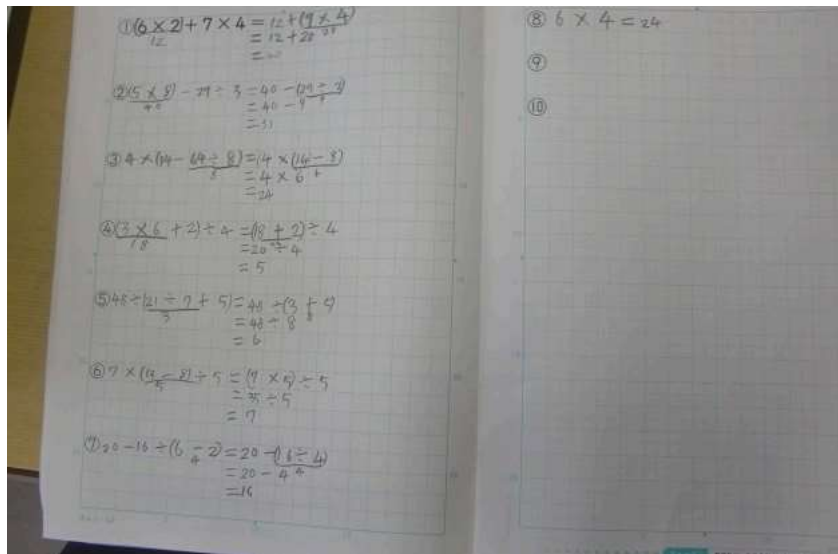 ①(6×2)+7×4=12+(7×4)
12 28
=12+28
②(5×8)-27÷3=40-(27÷3)
40 9
=40-9
=31
③4×(14-64÷8)=4×(14-8)
8 6
=4×6
=24
④(3×6+2)÷4=(18+2)÷4
18 20
=20÷4
=5
⑤48÷(21÷7+5)=48÷(3+5)
3 8
=48÷8
=6
⑥7×(13-8)÷5=(7×5)÷5
5
=35÷5
=7
⑦20-16÷(6-2)=20-(16÷4)
4 4
=20-4
=16
⑧6×4=24
⑨
⑩